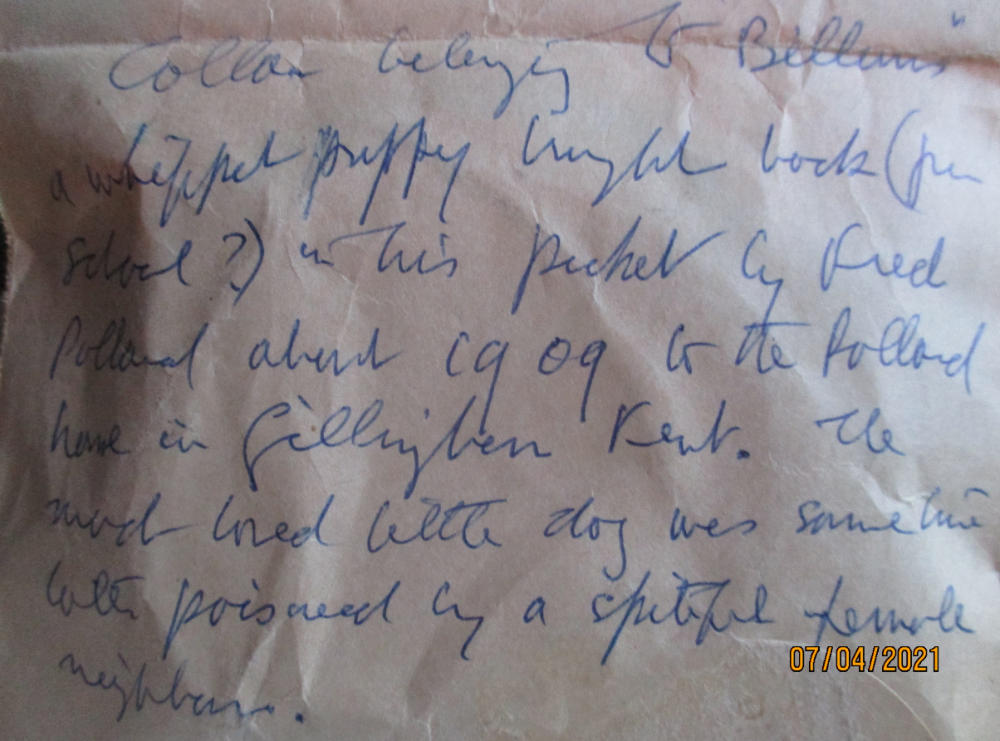 Collar belonging to Billums"
a whippet puppy brought back (from
school?) in his pocket by Fred
Pollard about 1909 to the Pollard
home in Gillingham Kent. The
much loved little dog was sometime
later poisoned by a spiteful female
neighbour.
07/04/2021